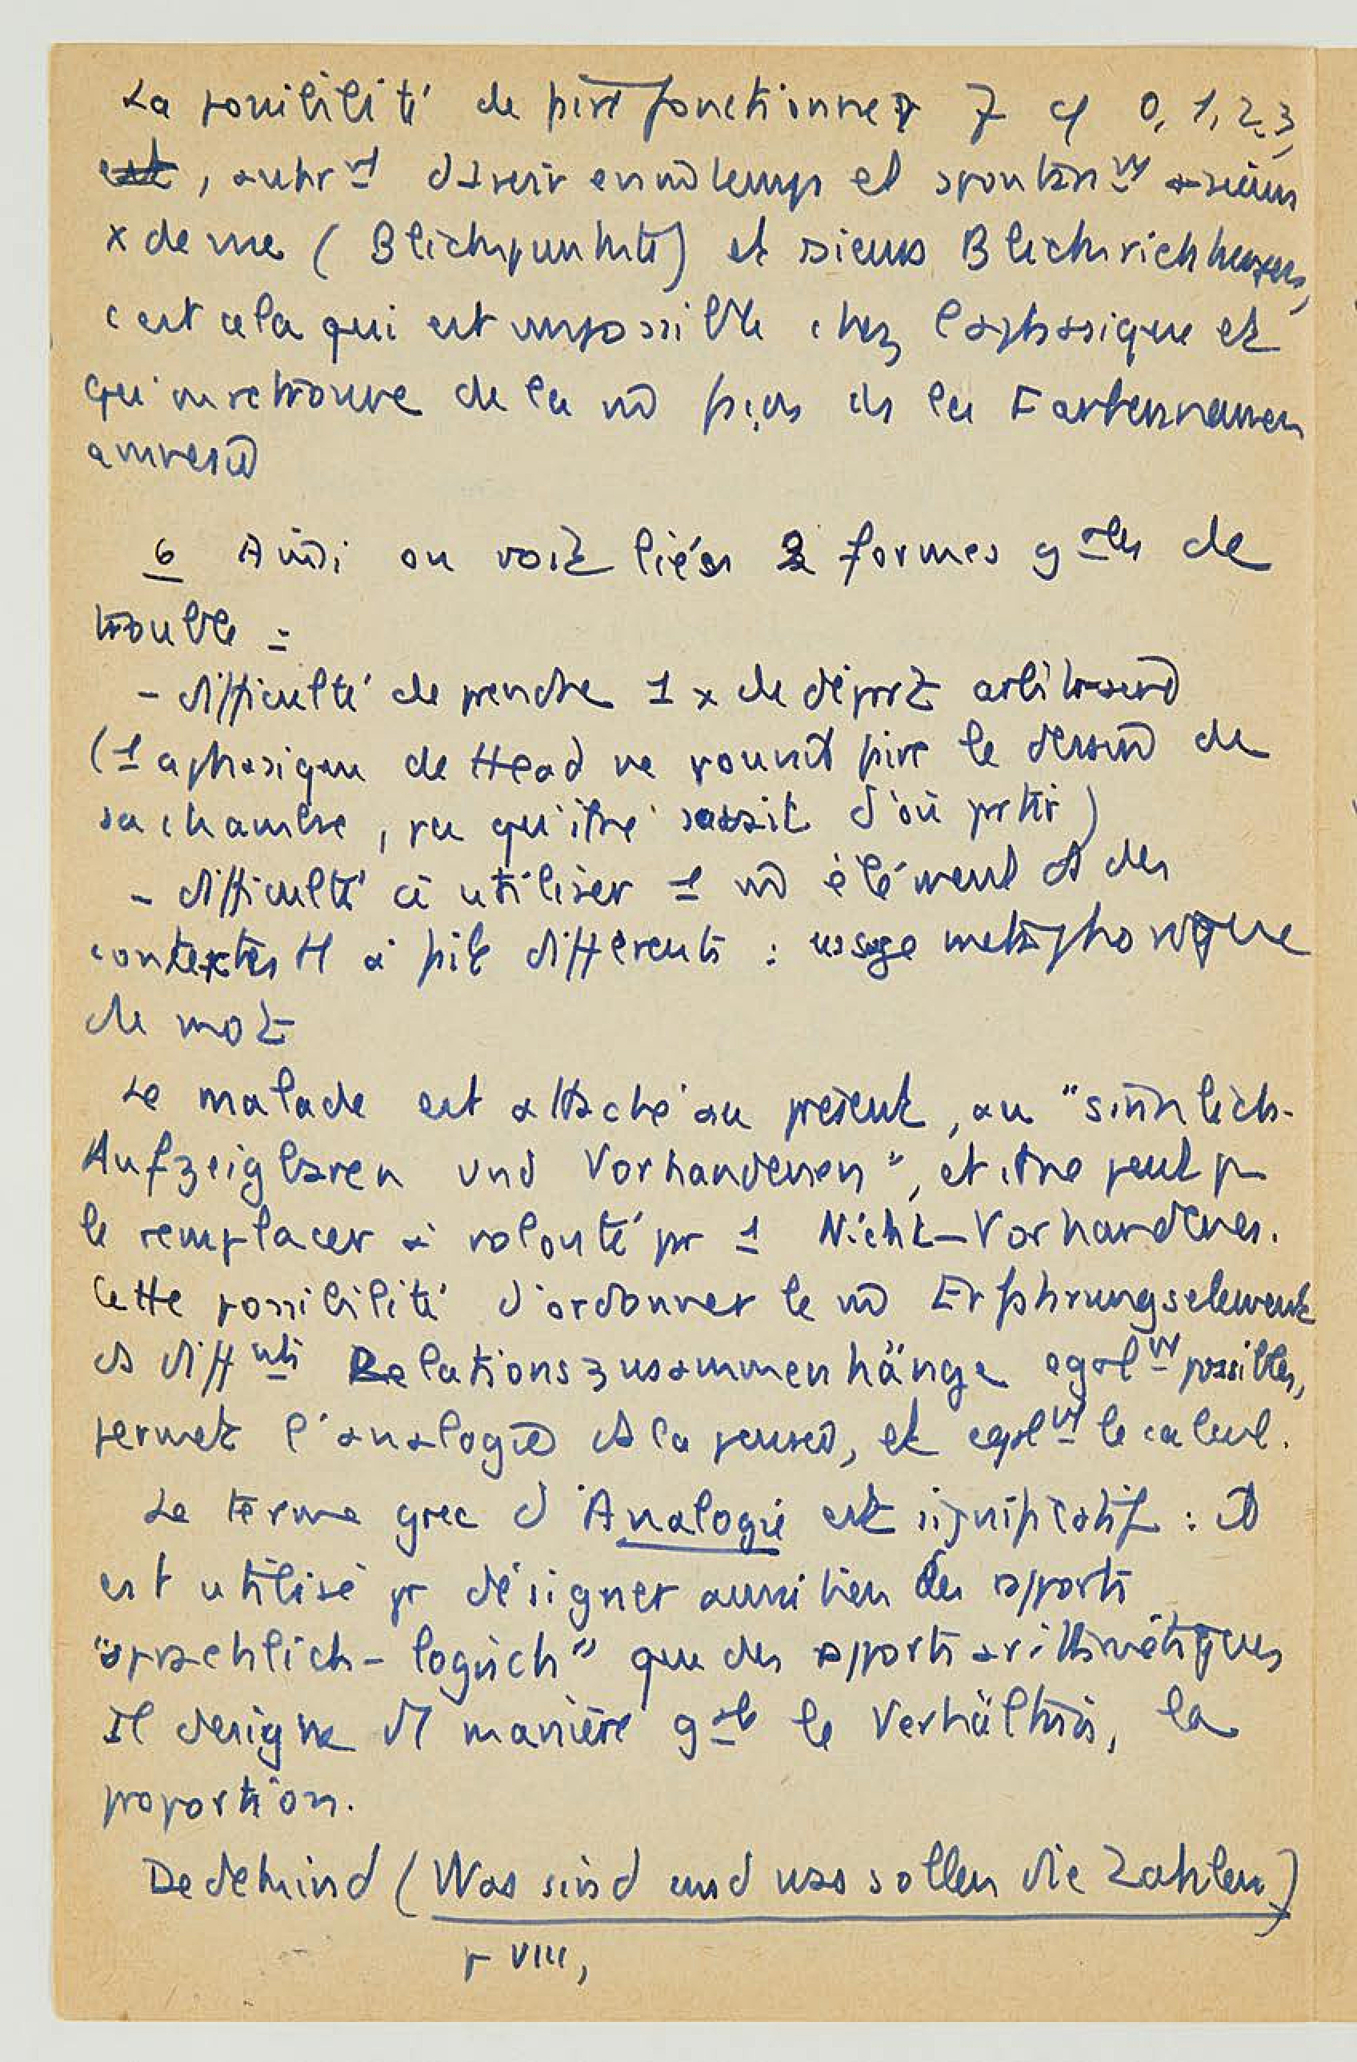 La possibilité de faire fonctionner 7 cô 0, 1, 2, 3,
est, autrmt d'avoir en mê temps et spontanmt
x de vue (Blickpunkte) et Blickrichtungen,
c'est cela qui est impossible chez l'aphasique et
qu'on retrouve de la mê façon ds la Farbennamen
amnesie
6 Ainsi on voit liées 2 formes gales de
trouble :
- difficulté de prendre 1 x de départ arbitraire
(1 aphasique de Head ne pouvait faire le dessin de
sa chambre, pu qu'il ne savait d'où partir)
- difficulté à utiliser 1 mê élément ds des
contextes différents : usage métaphorique
de mot
Le malade est attaché au présent, au "sinnlich-
Aufzeigbaren und Vorhandenen", et il ne peut pas
le remplacer à volonté par 1 Nicht-Vorhandenes.
Cette possibilité d'ordonner le mê Erfahrungselement
ds diffnts Relationszusammenhänge egalmt possibles,
permet l'analogie ds la pensée, et egalmt le calcul.
Le terme grec d'Analogie est significatif : il
est utilisé pr désigner aussi bien des rapports
"sprachlich-logisch" que des rapports arithmétiques
Il désigne de manière gale le Verhältnis, la
proportion.
Dedekind (Was sind und was sollen die Zahlen)
p VIII,